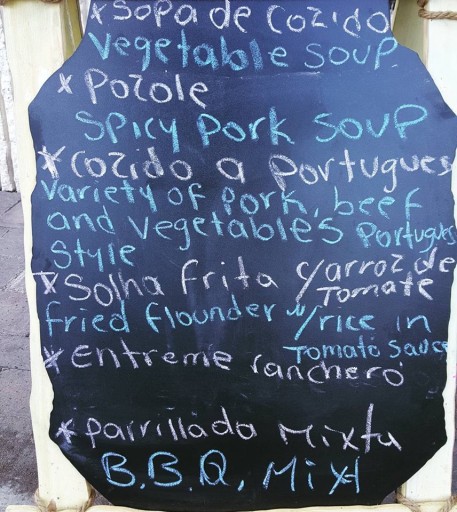 *Sopa de cozido
Vegetable soup
* Pozole
Spicy Pork Soup
*cozido a Portugues
Variety of Pork, beef
and Vegetables Portugues
Style
*Solha frita c/arroz de
Tomate
fried flounder w/rice in
Tomato sauce
*Entreme ranchero
*Parrillada Mixta
B.B.Q. Mixt